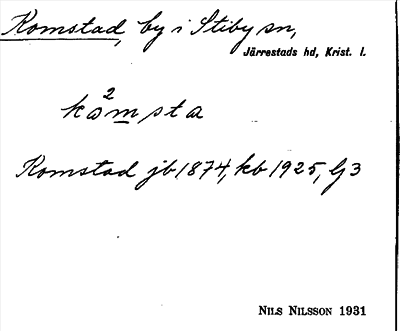 Komstad, by i Stiby sn,
Järrestads hd, Krist. l.
kåm²sta
Komstad jb 1874, kb 1925, Gj 3
NILS NILSSON 1931